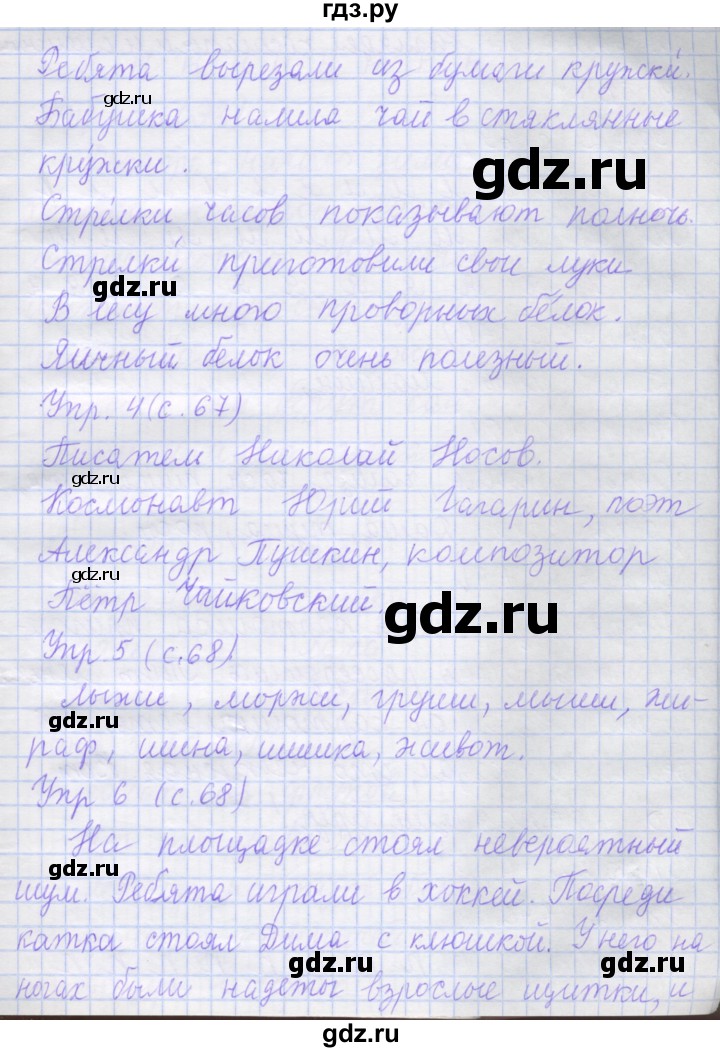 гдз.ру
Ребята вырезали из бумаги кружки́.
gdz.ru
Бабушка налила чай в стяклянные
gdz.ru
кру́жки.
Стре́лки часов показывают полночь.
Стрелки́ приготовили свои луки
gdz.ru
В лесу много проворных бе́лок.
Яичный бело́к очень полезный.
Упр. 4 (с. 67)
Писатель Николай Носов.
gdz.ru
Космонавт Юрий Гагарин, поэт
Александр Пушкин, композитор
gdz.ru
Пётр Чайковский.
gdz.ru
Упр 5 (с. 68)
лыжи, моржи, груши, мыши, жи-
gdz.ru
раф, шина, шишка, живот.
Упр 6 (с. 68)
На площадке стоял невероятный
gdz.ru
шум. Ребята играли в хоккей. Посреди
катка стоял Дима с клюшкой. У него на
gdz.ru
gdz.ru
ногах были надеты взрослые щитки, и
гдз.ру